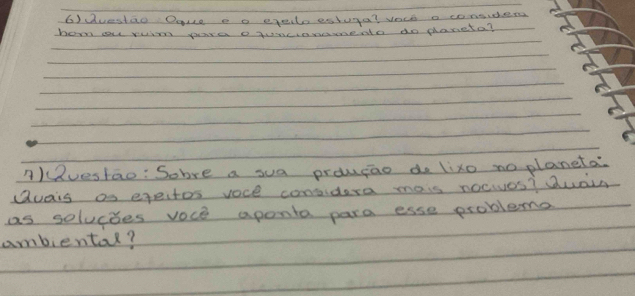 6) Questão: Oque e o efeito estufa? você o considera
bom ou ruim para o funcionamento do planeta?
7) Questão: Sobre a sua prdução de lixo no planeta:
Quais os efeitos você considera mais nocivos? Quais
as soluções você aponta para esse problema
ambiental?